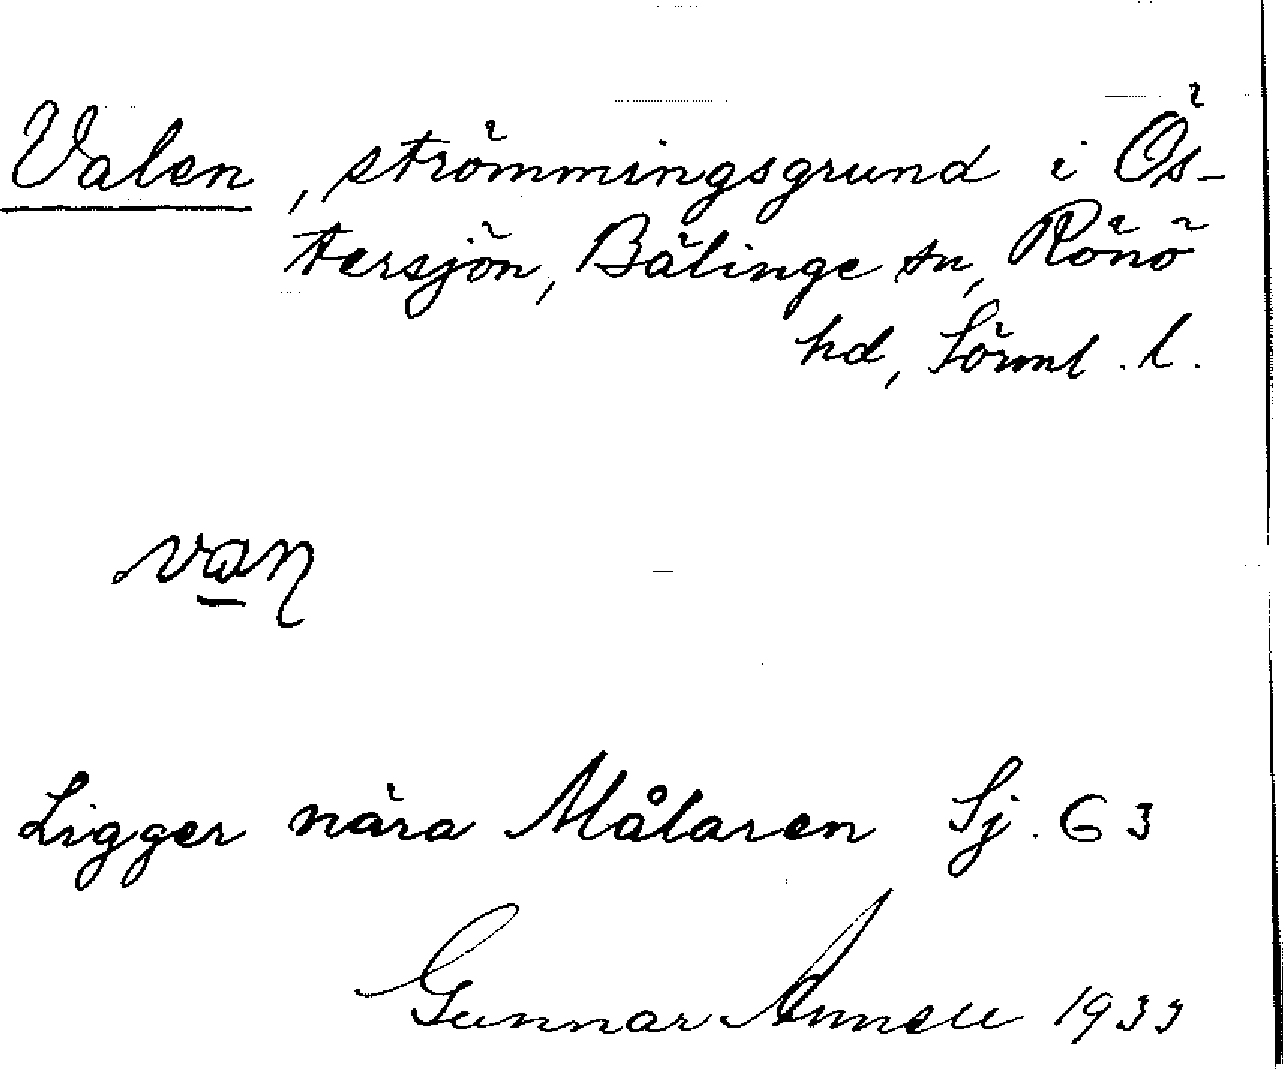 Valen, strömmingsgrund i Ös-
tersjön, Bälinge sn, Rönö
hd, Sörml. l.
Ligger nära Målaren Sj. 63
Gunnar Annell 1933